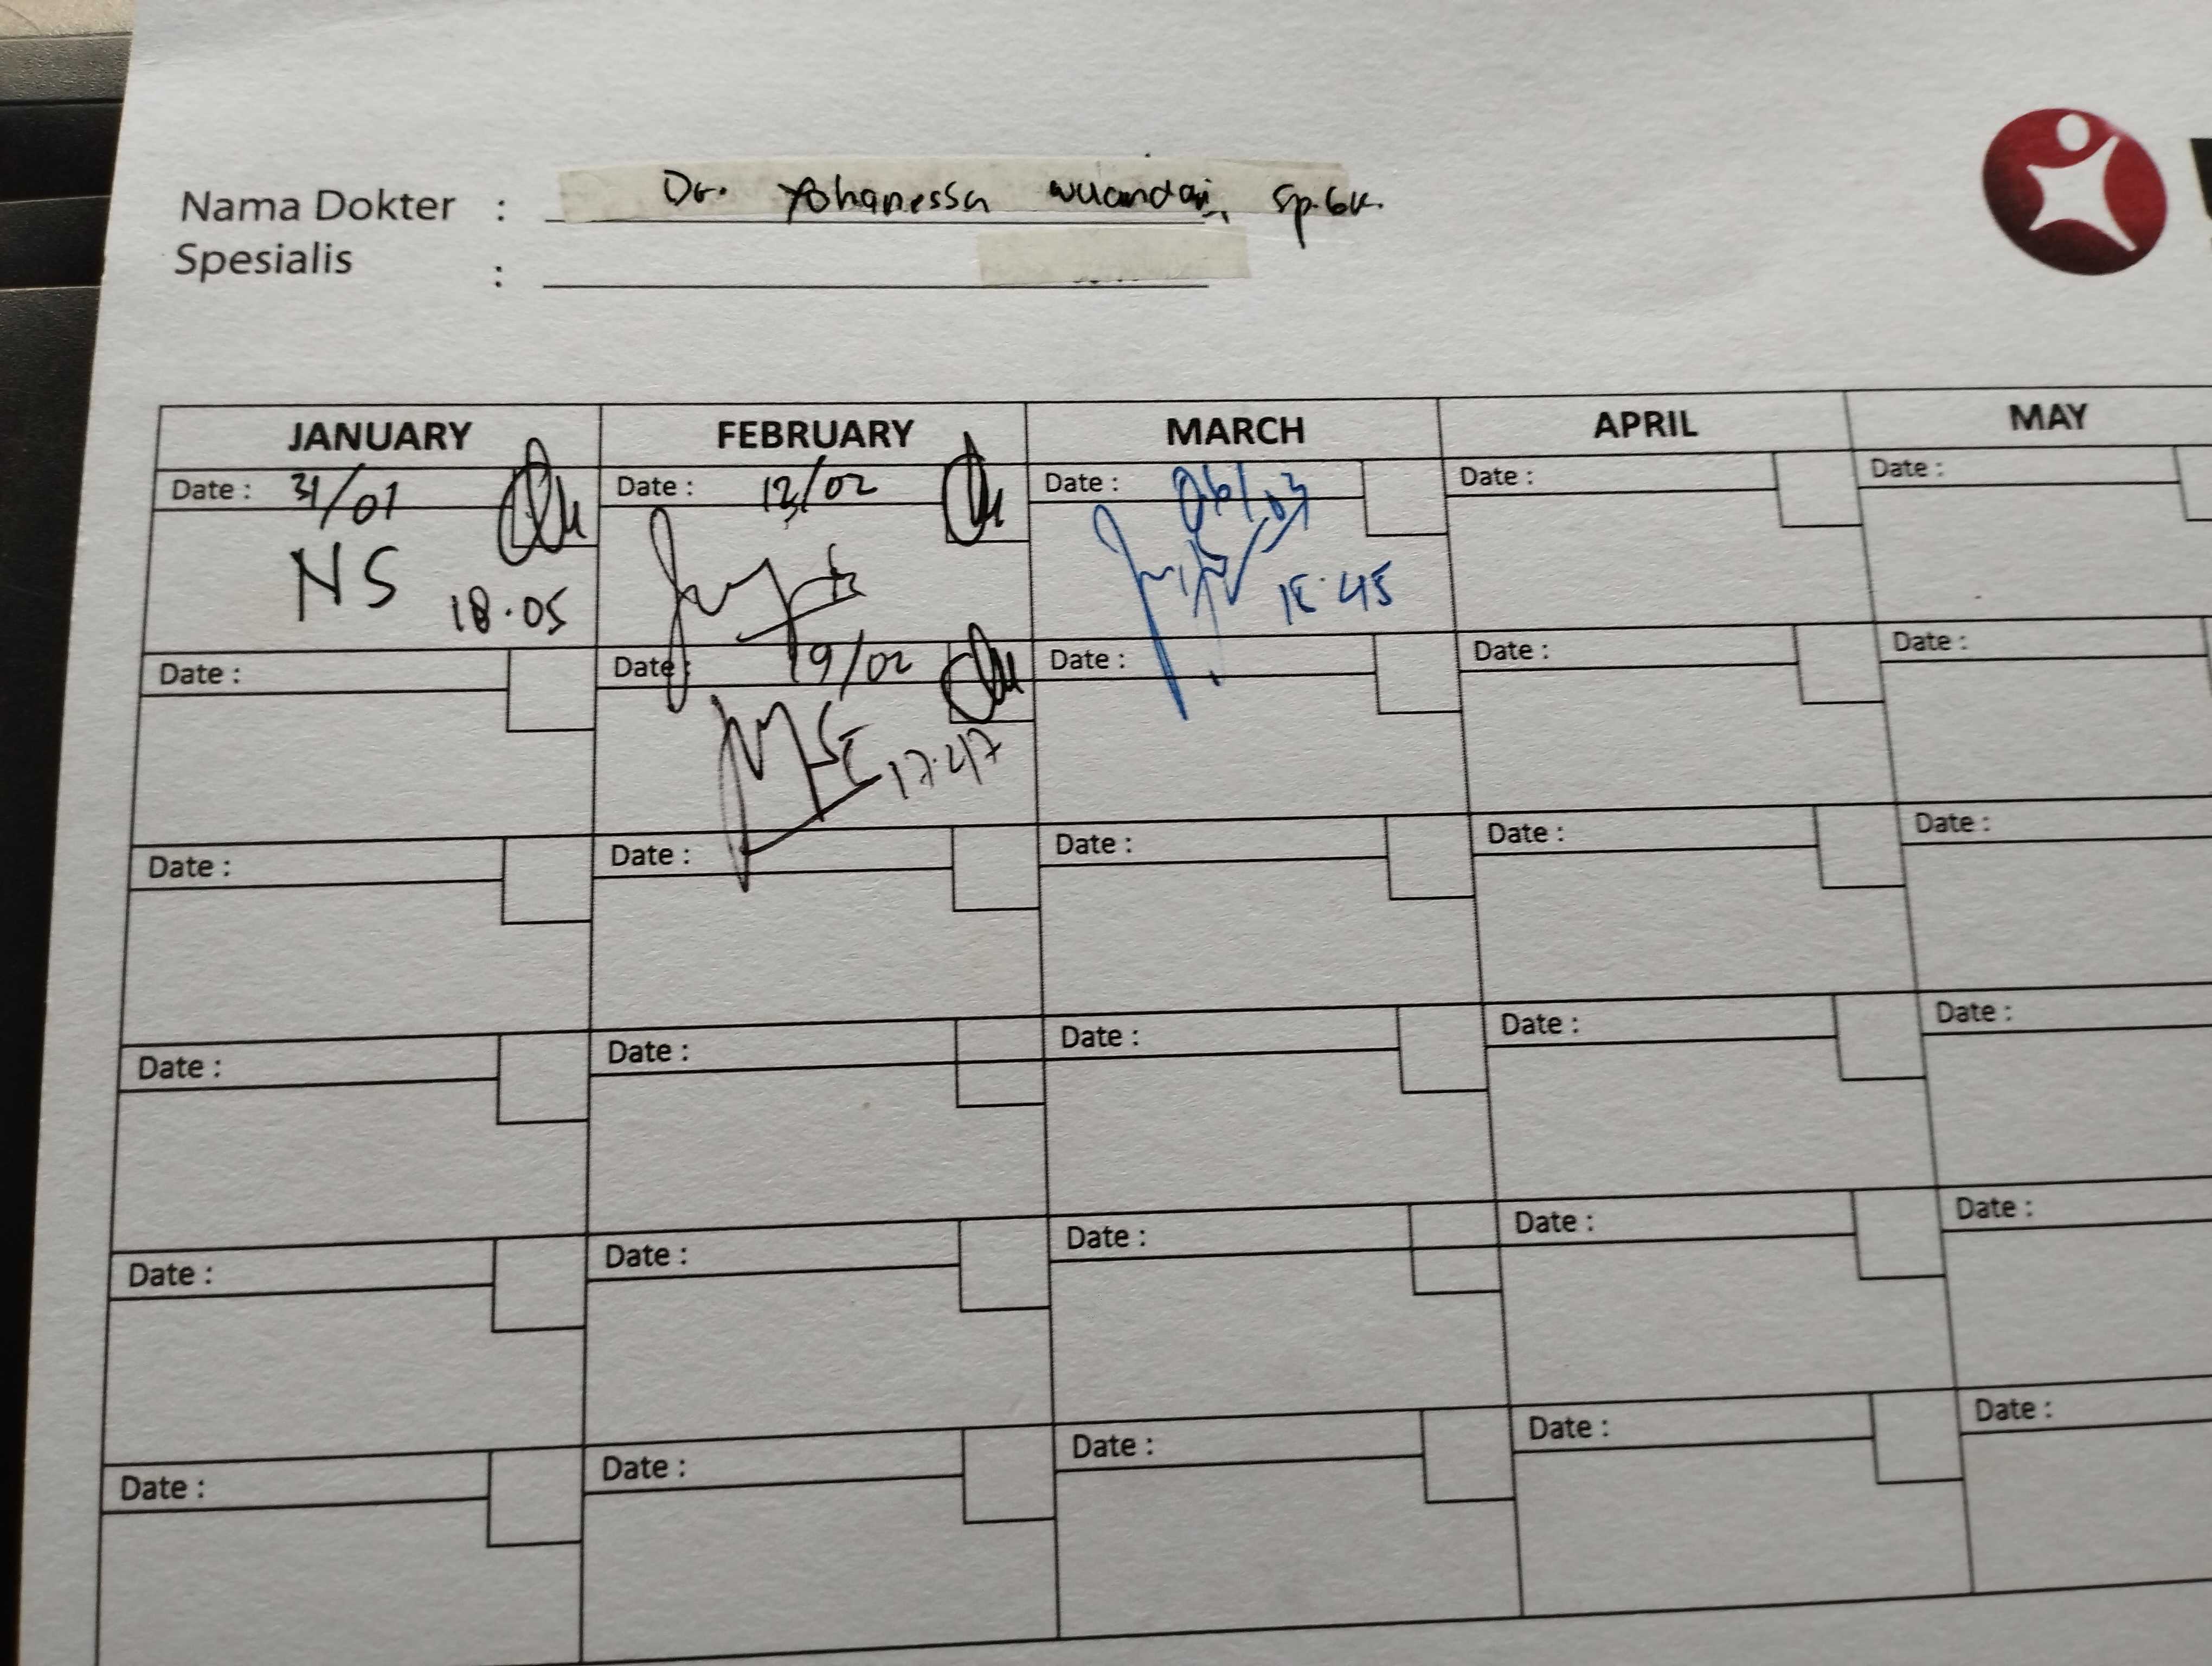 Nama Dokter : Dr. Yohanessa Wuandari, Sp.GK.
Spesialis :
JANUARY FEBRUARY MARCH APRIL MAY
Date : 31/01 Date : 12/02 Date : 06/03 Date : Date :
NS 18.05 18.45
Date : Date : 19/02 Date : Date : Date :
17.47
Date : Date : Date : Date : Date :
Date : Date : Date : Date : Date :
Date : Date : Date : Date : Date :
Date : Date : Date : Date : Date :